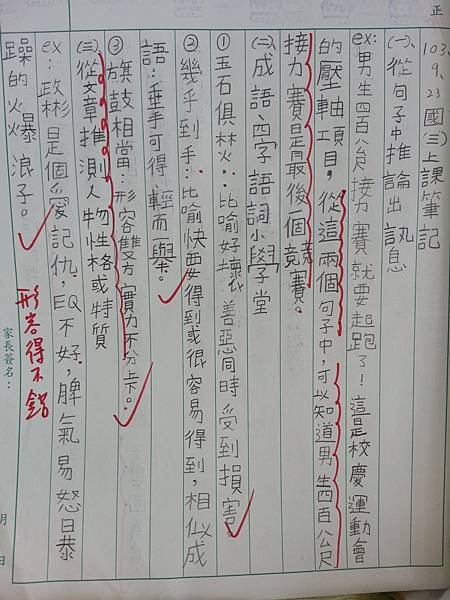 正
103.9.23國(三)上課筆記
(一)、從句子中推論出訊息
ex:男生四百公尺接力賽就要起跑了!這是校慶運動會
的壓軸項目,從這兩個句子中,可以知道男生四百公尺
接力賽是最後一個競賽。
(二)、成語、四字語詞小學堂
①玉石俱焚:比喻好壞、善惡同時受到損害
②幾乎到手:比喻快要得到或很容易得到,相似成
語:垂手可得、輕而舉。
③旗鼓相當:形容雙方實力不分上下。
(三)從文章推測人物性格或特質
ex:政彬是個愛記仇,EQ不好,脾氣易怒且暴
躁的火爆浪子。
形容得不錯
家長簽名:
月 日